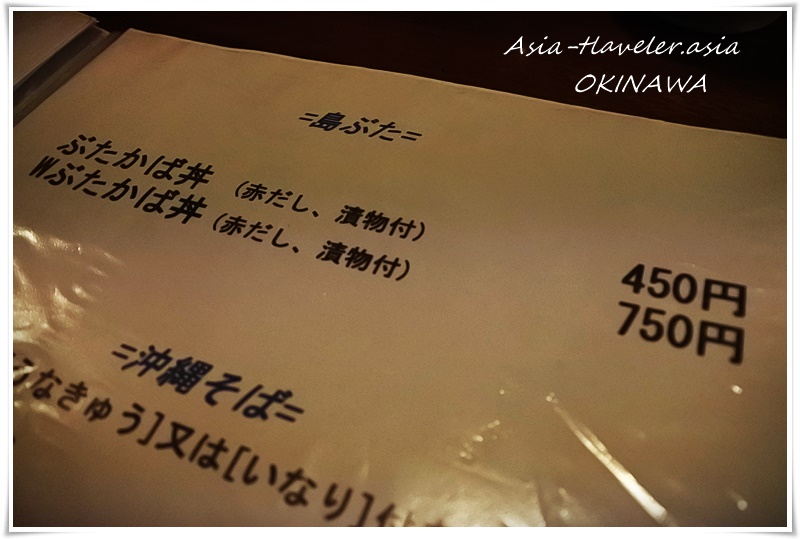 Asia-traveler.asia
OKINAWA
=島ぶた=
ぶたかば丼 (赤だし、漬物付) 450円
Wぶたかば丼 (赤だし、漬物付) 750円
=沖縄そば=
なきゅう]又は[いなり]付